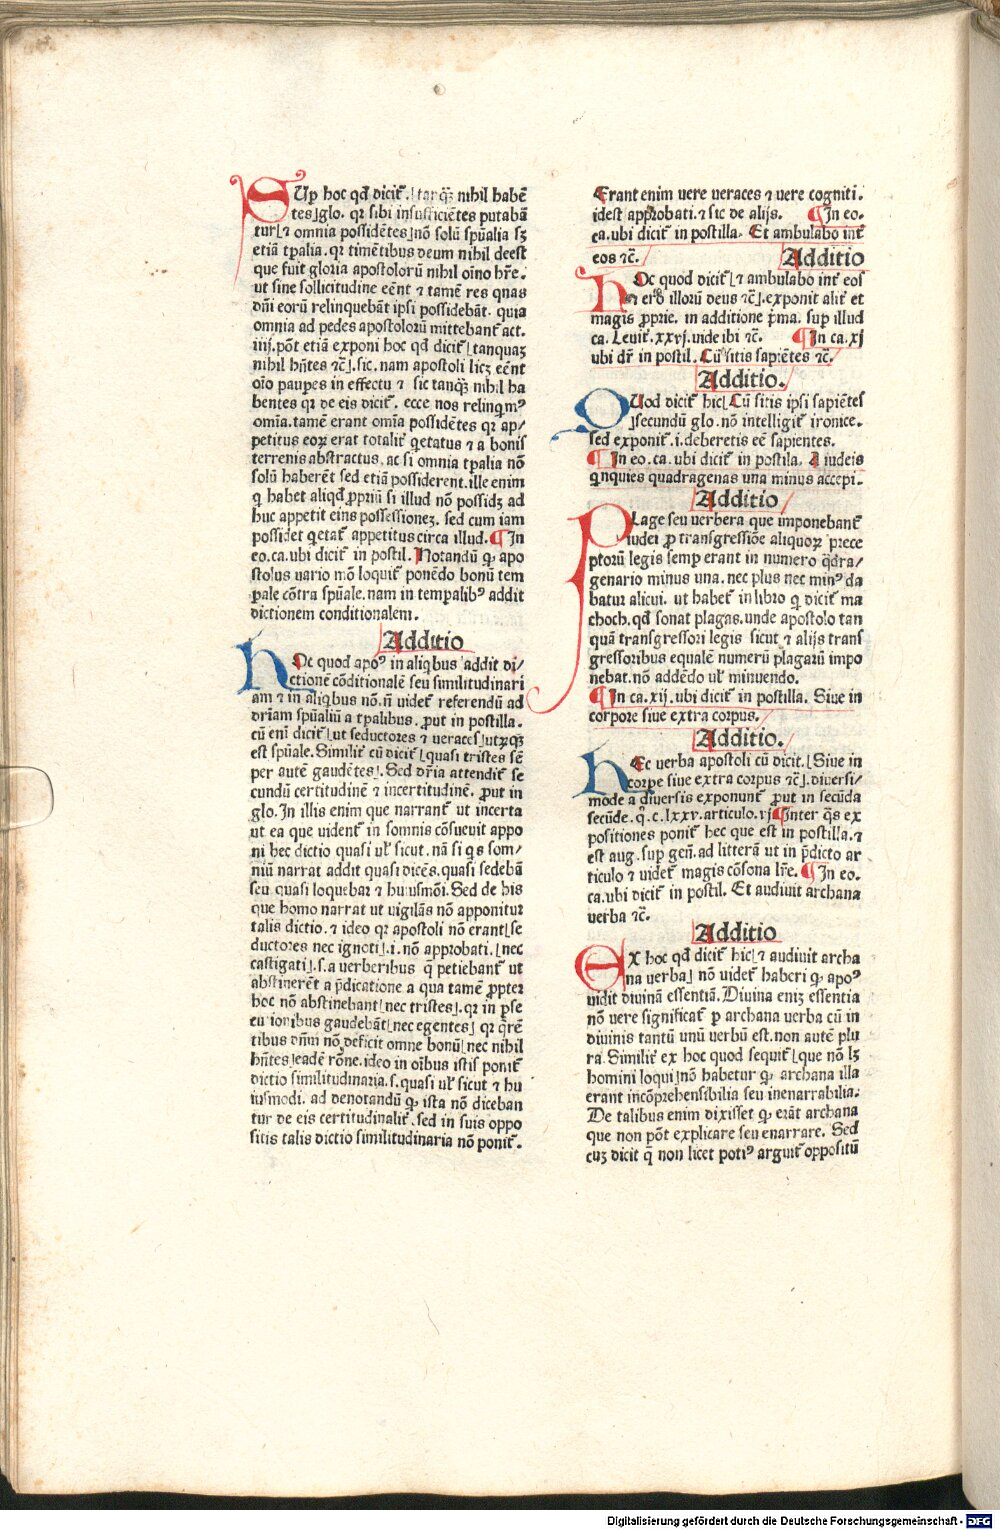 SUꝑ hoc qđ dicit᷑.⌊tanqȝ nihil habē
tes⌋glo. qꝛ sibi insufficiētes putabā
tur⌊⁊ omnia possidētes⌋nō solū spūalia sȝ
etiā tꝑalia. qꝛ timētibus deum nihil deest
que fuit gloria apostolorū nihil oīno hr̄e.
ut sine sollicitudine eēnt ⁊ tamē res quas
dn̄i eorū relinquebāt ipsi possidebāt. quia
omnia ad pedes apostolorū mittebant᷑ act.
iiij. pōt etiā exponi hoc qđ dicit᷑⌊tanquaȝ
nihil hn̄tes ⁊c̄⌋. sic. nam apostoli licȝ eēnt
oīo pauꝑes in effectu ⁊ sic tanqȝ nihil ha
bentes qꝛ de eis dicit᷑. ecce nos relinqmꝰ
omīa. tamē erant omīa possidētes qꝛ ap/
petitus eoꝝ erat totalit᷑ qetatus ⁊ a bonis
terrenis abstractus. ac si omnia tꝑalia nō
solū haberēt sed etiā possiderent. ille enim
q habet aliqđ ꝓpriū si illud nō possidȝ ad
huc appetit eius possessioneȝ. sed cum iam
possidet qetat᷑ appetitus circa illud. ¶In
eo. ca. ubi dicit᷑ in postil. Notandū ꝙ apo
stolus uario mō loquit᷑ ponēdo bonū tem
ꝑale cōtra spūale. nam in temꝑalibꝰ addit
dictionem conditionalem.
Additio
HOc quod apoꝰ in aliqbus addit di/
ctionē cōditionalē seu similitudinari
am ⁊ in aliqbus nō. n̄ uidet᷑ referendū ad
dr̄iam spūaliū a tꝑalibus. ꝓut in postilla.
cū eni dicit⌊ut seductores ⁊ ueraces⌋utꝝqȝ
est spūale. Similit᷑ cū dicit⌊quasi tristes sē
per autē gaudētes⌋. Sed dr̄ia attendit᷑ se
cundū certitudinē ⁊ incertitudinē. ꝓut in
glo. In illis enim que narrant᷑ ut incerta
ut ea que uident᷑ in somnis cōsueuit appo
ni hec dictio quasi ul᷑ sicut. nā si qs som/
niū narrat addit quasi dicēs. quasi sedebā
seu quasi loquebar ⁊ huiusmōi. Sed de his
que homo narrat ut uigilās nō apponitur
talis dictio. ⁊ ideo qꝛ apostoli nō erant⌊se
ductores nec ignoti⌋.i. nō approbati.⌊nec
castigati⌋.s. a uerberibus q̄ petiebant᷑ ut
abstinerēt a p̄dicatione a qua tamē ꝓpter
hoc nō abstinebant⌊nec tristes⌋. qꝛ in ꝑse
cutionibus gaudebāt⌊nec egentes⌋ qꝛ q̄rē
tibus dn̄m nō deficit omne bonū⌊nec nihil
hn̄tes⌋eadē rōne. ideo in oībus istis ponit᷑
dictio similitudinaria. s. quasi ul᷑ sicut ⁊ hu
iusmodi. ad denotandū ꝙ ista nō diceban
tur de eis certitudinalit᷑. sed in suis oppo
sitis talis dictio similitudinaria nō ponit᷑.
Erant enim uere ueraces ⁊ uere cogniti.
idest approbati. ⁊ sic de alijs. ¶In eo.
ca. ubi dicit᷑ in postilla. Et ambulabo int᷑
eos ⁊c̄.
Additio
HOc quod dicit᷑⌊⁊ ambulabo int᷑ eos
⁊ ero illorū deus ⁊c̄⌋. exponit alit᷑ et
magis ꝓprie. in additione pͥma. suꝑ illud
ca. Leuit. xxvj. uide ibi ⁊c̄. ¶In ca. xj
ubi dr̄ in postil. Cū sitis sapiētes ⁊c̄.
Additio.
QUod dicit᷑ hic⌊Cū sitis ipsi sapiētes
⌋secundū glo. nō intelligit᷑ ironice.
sed exponit᷑. i. deberetis eē sapientes.
¶In eo. ca. ubi dicit᷑ in postila. A iudeis
qnquies quadragenas una minus accepi.
Additio
PLage seu uerbera que imponebant᷑
iudei ꝓ transgressiōe aliquoꝝ prece
ptorū legis semꝑ erant in numero qdra/
genario minus una. nec plus nec minꝰ da
batur alicui. ut habet᷑ in libro q dicit᷑ ma
choch. qđ sonat plagas. unde apostolo tan
quā transgressori legis sicut ⁊ alijs trans
gressoribus equalē numerū plagarū impo
nebāt. nō addēdo ul᷑ minuendo.
¶In ca. xij. ubi dicit᷑ in postilla. Siue in
corpore siue extra corpus.
Additio.
HEc uerba apostoli cū dicit.⌊Siue in
corꝑe siue extra corpus ⁊c̄⌋. diuersi/
mode a diuersis exponunt᷑ ꝓut in secūda
secūde. q̄. c. lxxv. articulo. vj ¶Inter q̄s ex
positiones ponit᷑ hec que est in postilla. ⁊
est aug. suꝑ gen̄. ad litterā ut in p̄dicto ar
ticulo ⁊ uidet᷑ magis cōsona lr̄e. ¶In eo.
ca. ubi dicit᷑ in postil. Et audiuit archana
uerba ⁊c̄.
Additio
EX hoc qđ dicit᷑ hic⌊⁊ audiuit archa
na uerba⌋ nō uidet᷑ haberi ꝙ apoꝰ
uidit diuinā essentiā. Diuina eniȝ essentia
nō uere significat᷑ ꝑ archana uerba cū in
diuinis tantū unū uerbū est. non autē plu
ra. Similit᷑ ex hoc quod sequit᷑⌊que nō lȝ
homini loqui⌋nō habetur ꝙ archana illa
erant incōprehensibilia seu inenarrabilia.
De talibus enim dixisset ꝙ erāt archana
que non pōt explicare seu enarrare. Sed
cuȝ dicit q̄ non licet potiꝰ arguit᷑ oppositū
Digitalisierung gefördert durch die Deutsche Forschungsgemeinschaft - DFG